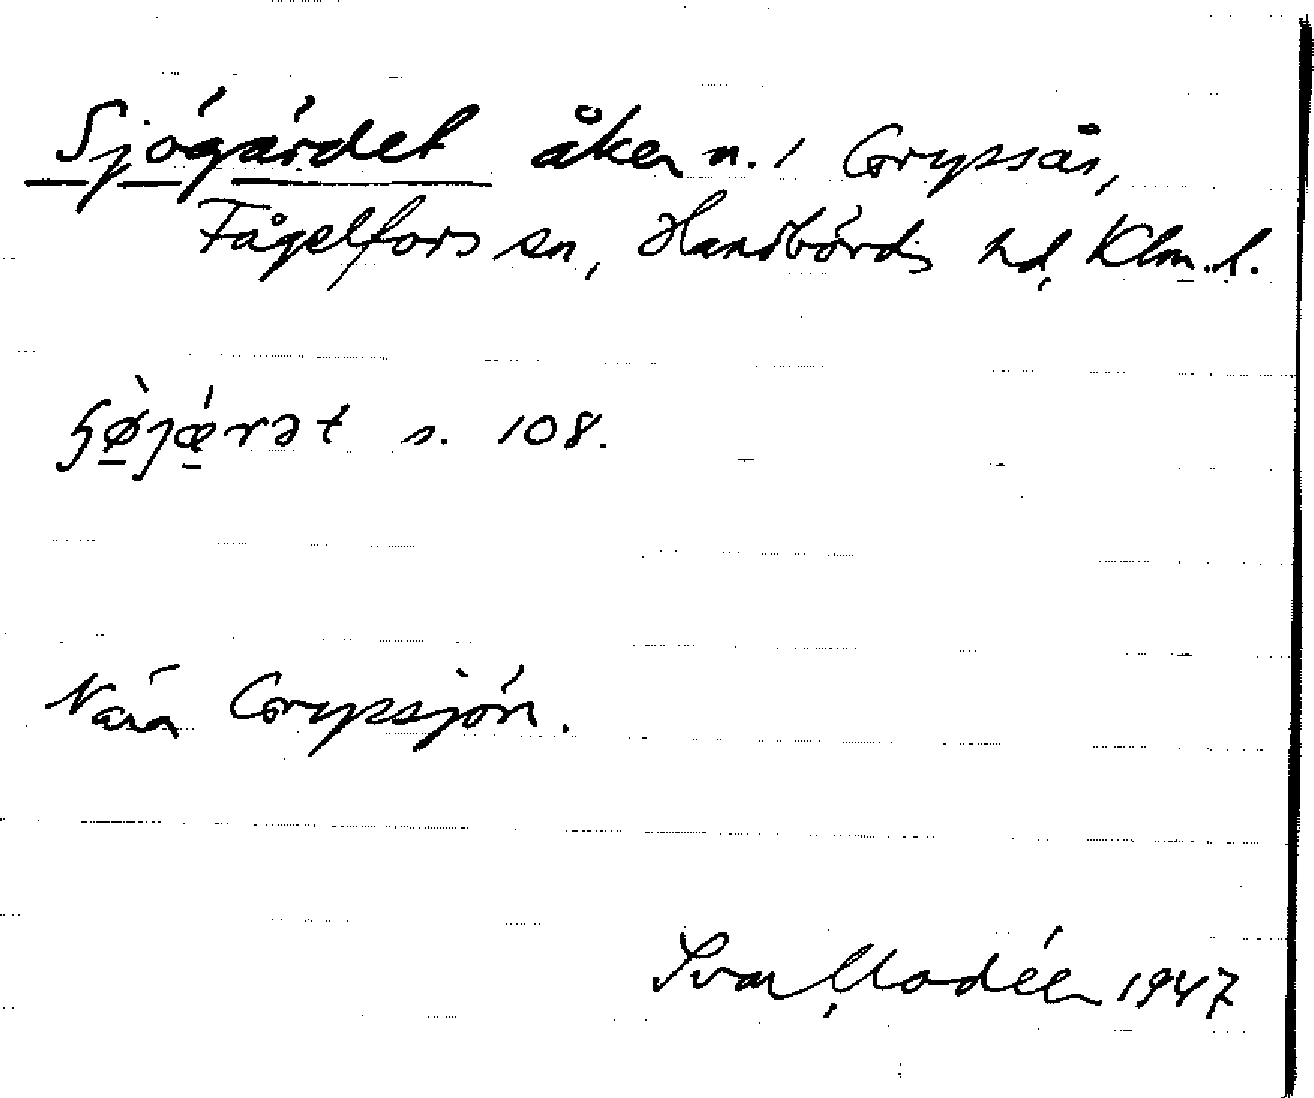 Sjögärdet åker n. i Grypsås,
Fågelfors sn, Handbörds hd, Klm. l.
ɧø̀jæ̀rət s. 108.
Nära Grypsjön.
Ivar Modéer 1947